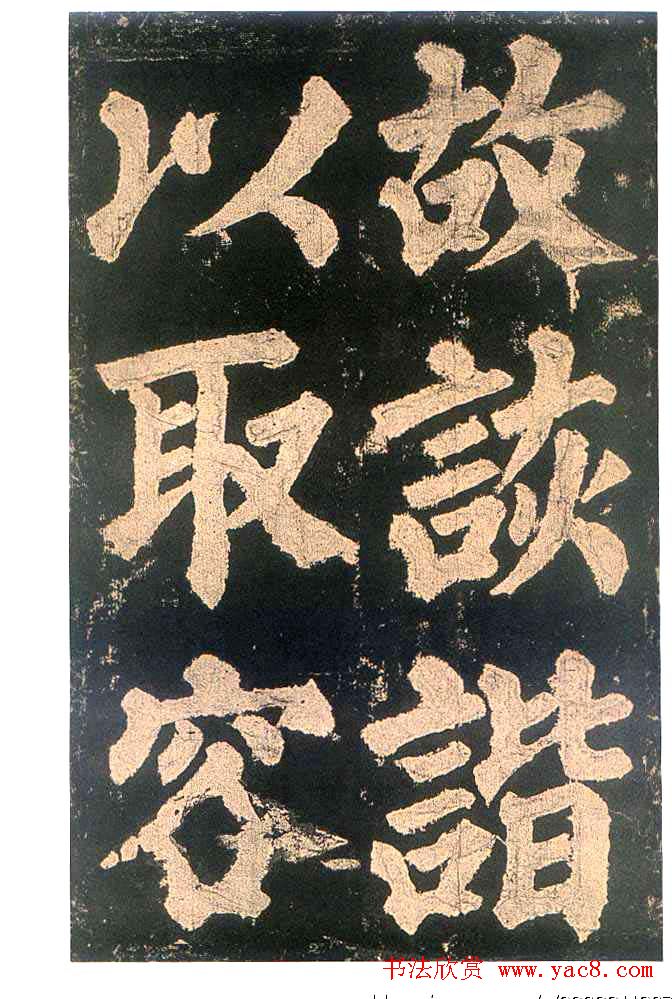 故詼諧
以取容
书法欣赏 www.yac8.com